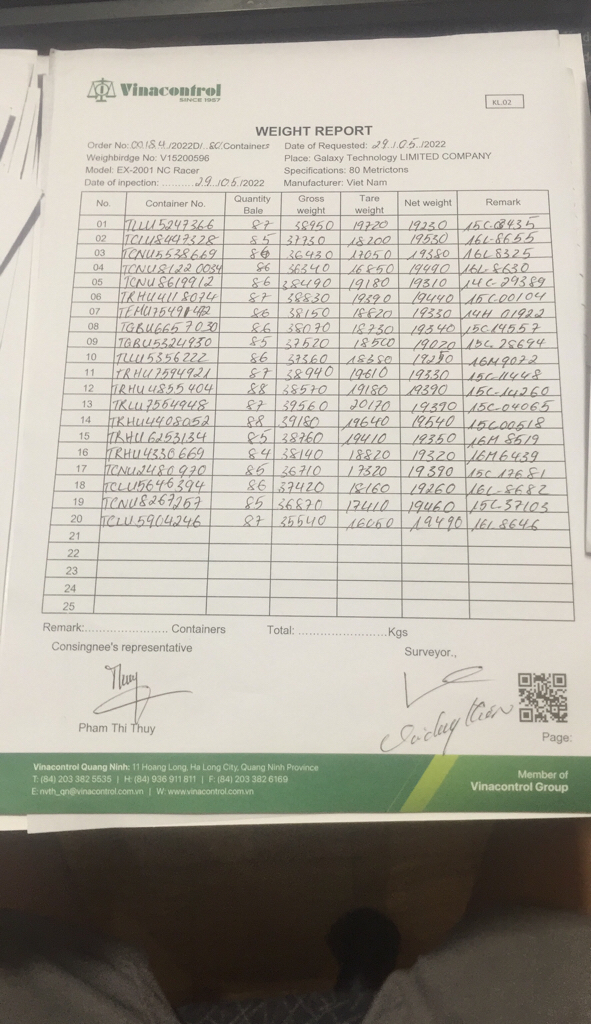 Vinacontrol
SINCE 1987
KL.02
WEIGHT REPORT
Order No: 00184/2022D/..80.Containers Date of Requested: 29./.05./2022
Weighbirdge No: V15200596 Place: Galaxy Technology LIMITED COMPANY
Model: EX-2001 NC Racer Specifications: 80 Metrictons
Date of inpection: ..........29../05/2022 Manufacturer: Viet Nam
No. Container No. Quantity Bale Gross weight Tare weight Net weight Remark
01 87 38950 19720 19230
02 TCLU8447328 85 37730 18200 19530 16L-8655
03 TCNU5538669 86 36430 17050 19380 16L8325
04 TCNU8122 0034 86 36340 16850 19490 16L-8630
05 TCNU8619912 86 38490 19180 19310 14C-29389
06 TRHU4118074 87 38830 19390 19440 15C00104
07 86 38150 18820 19330 14H 01922
08 TGBU6657030 86 38070 18730 19340 15C14557
09 TGBU5324930 85 37520 18500 19020 15C 28694
10 TLLU5356222 86 37360 19250 16M9072
11 TRHU7594921 87 38940 19610 19330 15C11448
12 TRHU4855404 88 38570 19180 19390 15C-14260
13 TKLU7564948 87 39560 20170 19390 15C-04065
14 TRHU4408052 88 39180 19640 19540 15C00518
15 TRHU6253134 85 38760 19410 19350 16M 8519
16 TRHU4330669 84 38140 18820 19320 16M6439
17 TCNU2480970 85 36710 17320 19390 15C 17681
18 TCLU5646394 86 37420 18160 19260 16L-8682
19 TCNU8267257 85 36870 17410 19460 15C-37103
20 TCLU5904246 87 35540 16050 19490 16L8646
21
22
23
24
25
Remark:........................ Containers Total: ..........................Kgs
Consingnee's representative Surveyor.,
Thuy
Pham Thi Thuy
Page:
Vinacontrol Quang Ninh: 11 Hoang Long, Ha Long City, Quang Ninh Province
T: (84) 203 382 5535 | H: (84) 936 911 811 | F: (84) 203 382 6169
E: nvth_qn@vinacontrol.com.vn | W: www.vinacontrol.com.vn
Member of
Vinacontrol Group